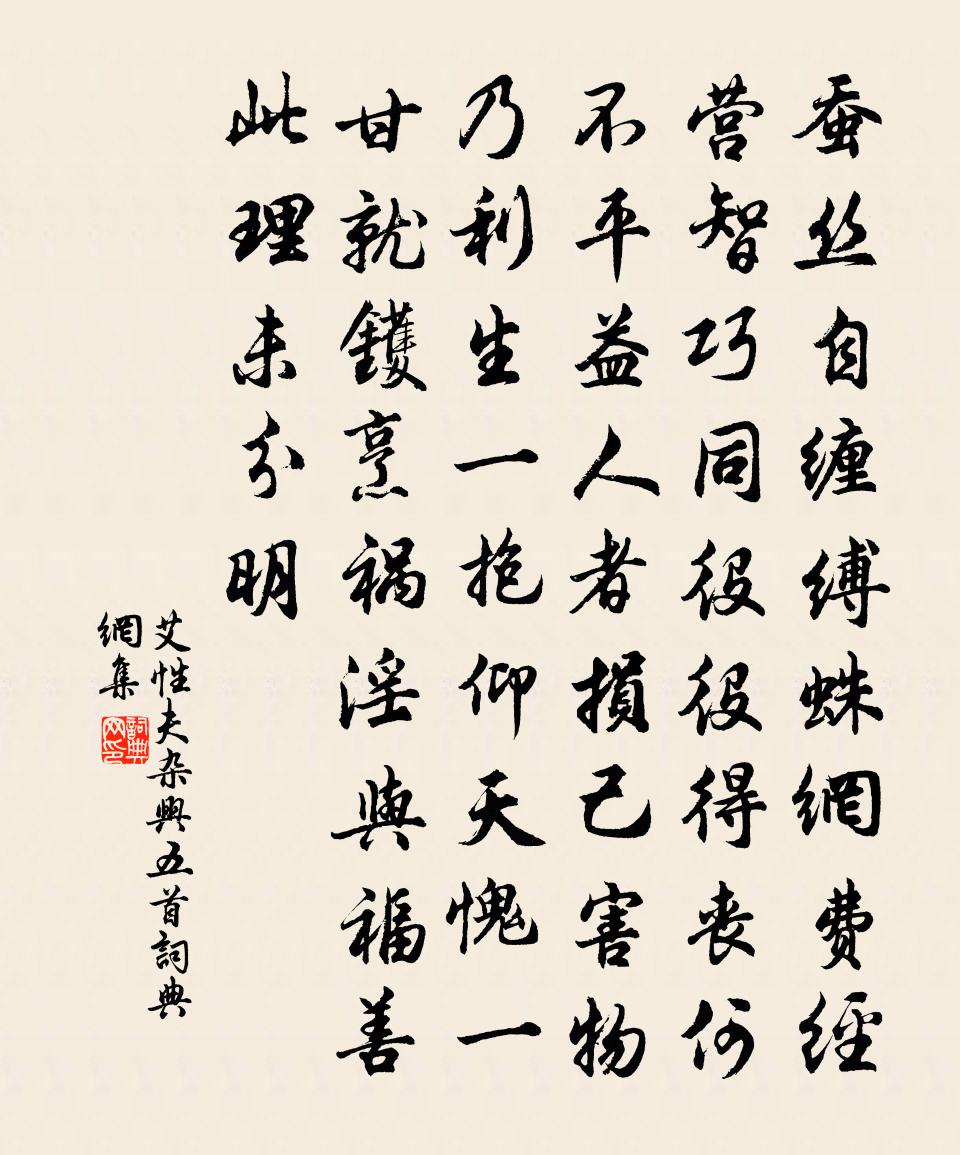 蚕丝自缠缚蛛網费经
营智巧同役役得丧何
不平益人者損己害物
乃利生一抱仰天愧一
甘就鑊烹祸淫與福善
此理未分明
艾性夫杂興五首詞典
網集
詞典网印